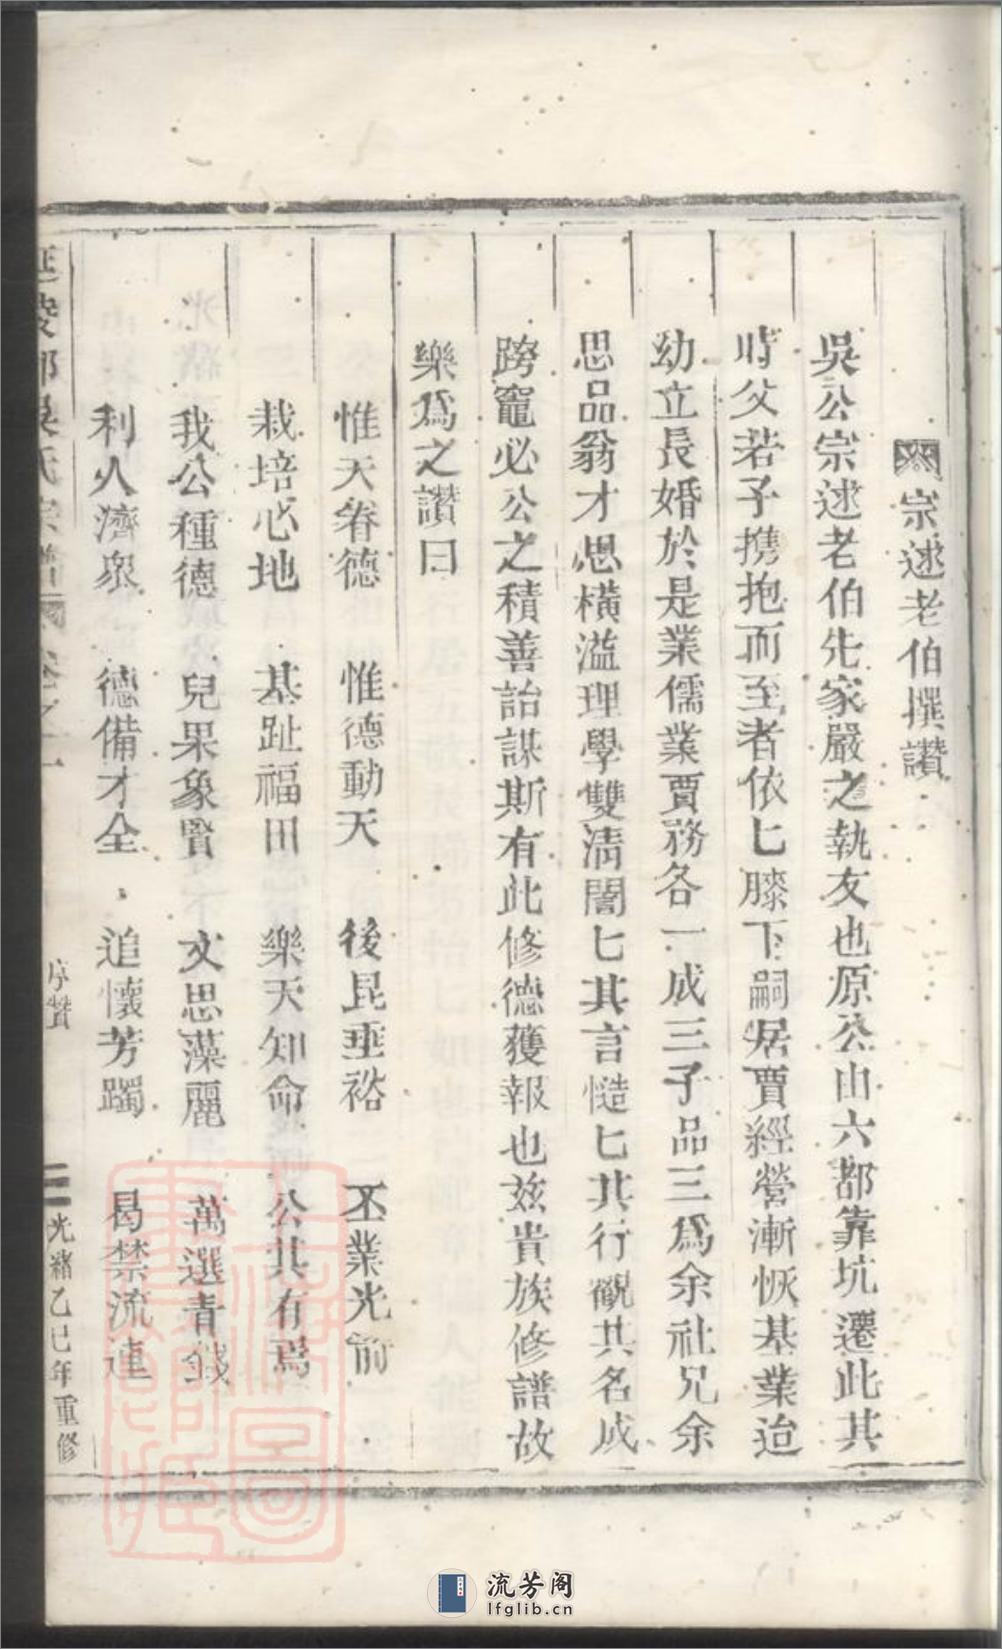 宗述老伯撰讚
吳公宗述老伯先家嚴之執友也原公由六都靠坑遷此其
時父若子携抱而至者依匕膝下嗣居賈經營漸恢基業迨
幼立長婚於是業儒業賈務各一成三子品三爲余社兄余
思品翁才思橫溢理學雙清誾匕其言慥匕其行觀其名成
跨竈必公之積善詒謀斯有此修德獲報也玆貴族修譜故
樂爲之讚曰
惟天眷德 惟德動天 後昆垂裕 丕業光前
栽培心地 基趾福田 樂天知命 公其有焉
我公種德 兒果象賢 文思藻麗 萬選青錢
利人濟衆 德備才全 追懷芳躅 曷禁流連
延陵郡吳氏宗譜 卷之一 序贊 二 光緒乙巳年重修
流芳阁
lfglib.cn